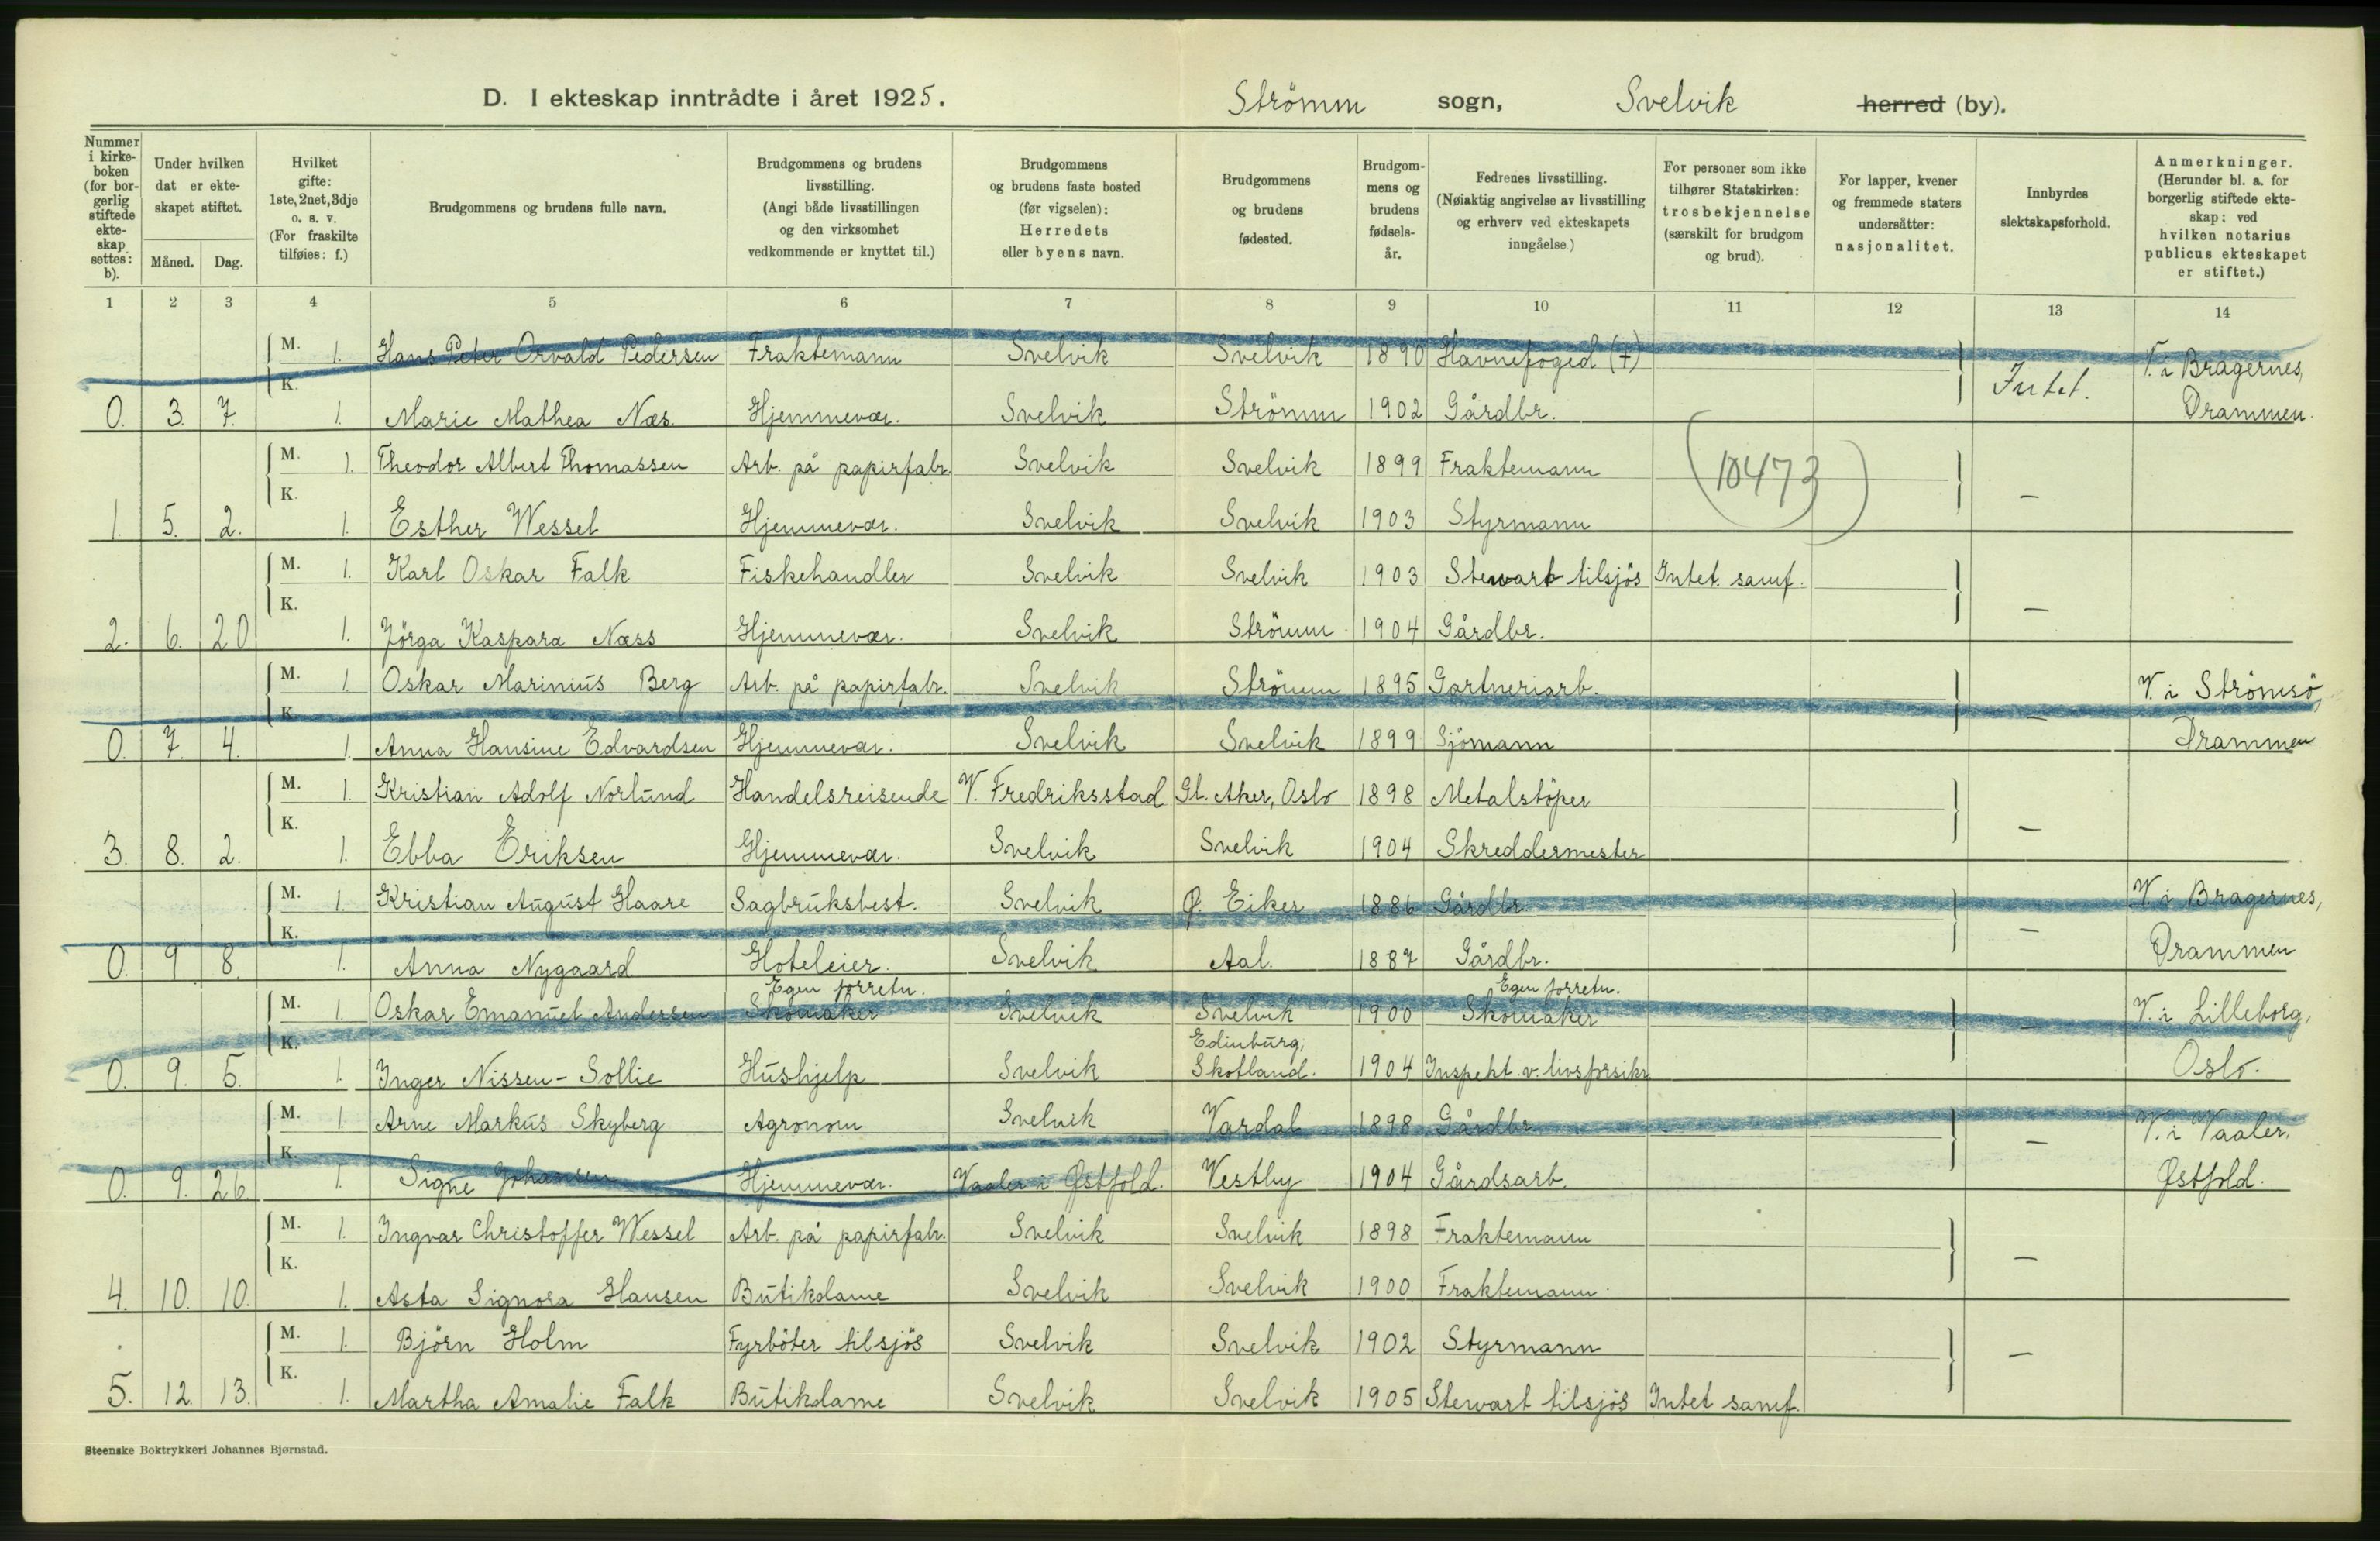 D. I ekteskap inntrådte i året 1925. Strömm sogn, Svelvik herred (by).
Nummer i kirke-boken (for bor-gerlig stiftede ekte-skap settes: b).
Under hvilken dat er ekte-skapet stiftet.
Måned. Dag.
Hvilket gifte: 1ste, 2net, 3dje o. s. v. (For fraskilte tilføies: f.)
Brudgommens og brudens fulle navn.
Brudgommens og brudens livsstilling. (Angi både livsstillingen og den virksomhet vedkommende er knyttet til.)
Brudgommens og brudens faste bosted (før vigselen): Herredets eller byens navn.
Brudgommens og brudens fødested.
Brudgom-mens og brudens fødsels-år.
Fedrenes livsstilling. (Nøiaktig angivelse av livsstilling og erhverv ved ekteskapets inngåelse)
For personer som ikke tilhører Statskirken: trosbekjennelse (særskilt for brudgom og brud).
For lapper, kvener og fremmede staters undersåtter: nasjonalitet.
Innbyrdes slektskapsforhold.
Anmerkninger. (Herunder bl. a. for borgerlig stiftede ekte-skap: ved hvilken notarius publicus ekteskapet er stiftet.)
1 2 3 4 5 6 7 8 9 10 11 12 13 14
M. 1. Hans Peter Orvald Pedersen Fraktemann Svelvik Svelvik 1890 Havnefoged (†) V. i Bragernes,
K. Intet.
0. 3. 7. 1. Marie Mathea Næs. Hjemmevær. Svelvik Strömm 1902 Gårdbr. Drammen.
M. 1. Theodor Albert Thomassen Arb. på papirfabr. Svelvik Svelvik 1899 Fraktemann (10473)
K. —
1. 5. 2. 1. Esther Wessel Hjemmevær. Svelvik Svelvik 1903 Styrmann
M. 1. Karl Oskar Falk Fiskehandler Svelvik Svelvik 1903 Stewart tilsjös Intet samf.
K. —
2. 6. 20. 1. Jörga Kaspara Næss Hjemmevær. Svelvik Strömm 1904 Gårdbr.
M. 1. Oskar Marinius Berg Arb. på papirfabr. Svelvik Strömm 1895 Gartneriarb. V. i Strömsö,
K. —
0. 7. 4. 1. Anna Hansine Edvardsen Hjemmevær. Svelvik Svelvik 1899 Sjömann Drammen
M. 1. Kristian Adolf Norlund Handelsreisende V. Fredriksstad Gl. Aker, Oslo 1898 Metalstöper
K. —
3. 8. 2. 1. Ebba Eriksen Hjemmevær. Svelvik Svelvik 1904 Skreddermester
M. 1. Kristian August Haare Sagbruksbest. Svelvik Ø. Eiker 1886 Gårdbr. V. i Bragernes,
K. —
0. 9 8. 1. Anna Nygaard Hoteleier. Svelvik Aal. 1887 Gårdbr. Drammen
Egen forretn. Egen forretn.
M. 1. Oskar Emanuel Andersen Skomaker Svelvik Svelvik 1900 Skomaker — V. i Lilleborg,
K. Edinburg,
0. 9. 5. 1. Inger Nissen-Sollie Hushjelp Svelvik Skotland. 1904 Inspekt. v. livsforsikr. Oslo.
M. 1. Arne Markus Skyberg Agronom Svelvik Vardal 1898 Gårdbr. V. i Vaaler.
K. —
0. 9. 26. 1. Signe Johansen Hjemmevær. Vaaler i Østfold. Vestby 1904 Gårdsarb. Østfold.
M. 1. Ingvar Christoffer Wessel Arb. på papirfabr. Svelvik Svelvik 1898 Fraktemann
K. —
4. 10. 10. 1. Asta Signora Hansen Butikdame Svelvik Svelvik 1900 Fraktemann.
M. 1. Björn Holm Fyrböter tilsjös Svelvik Svelvik 1902 Styrmann
K. —
5. 12. 13. 1. Martha Amalie Falk Butikdame Svelvik Svelvik 1905 Stewart tilsjös Intet samf.
Steenske Boktrykkeri Johannes Bjørnstad.